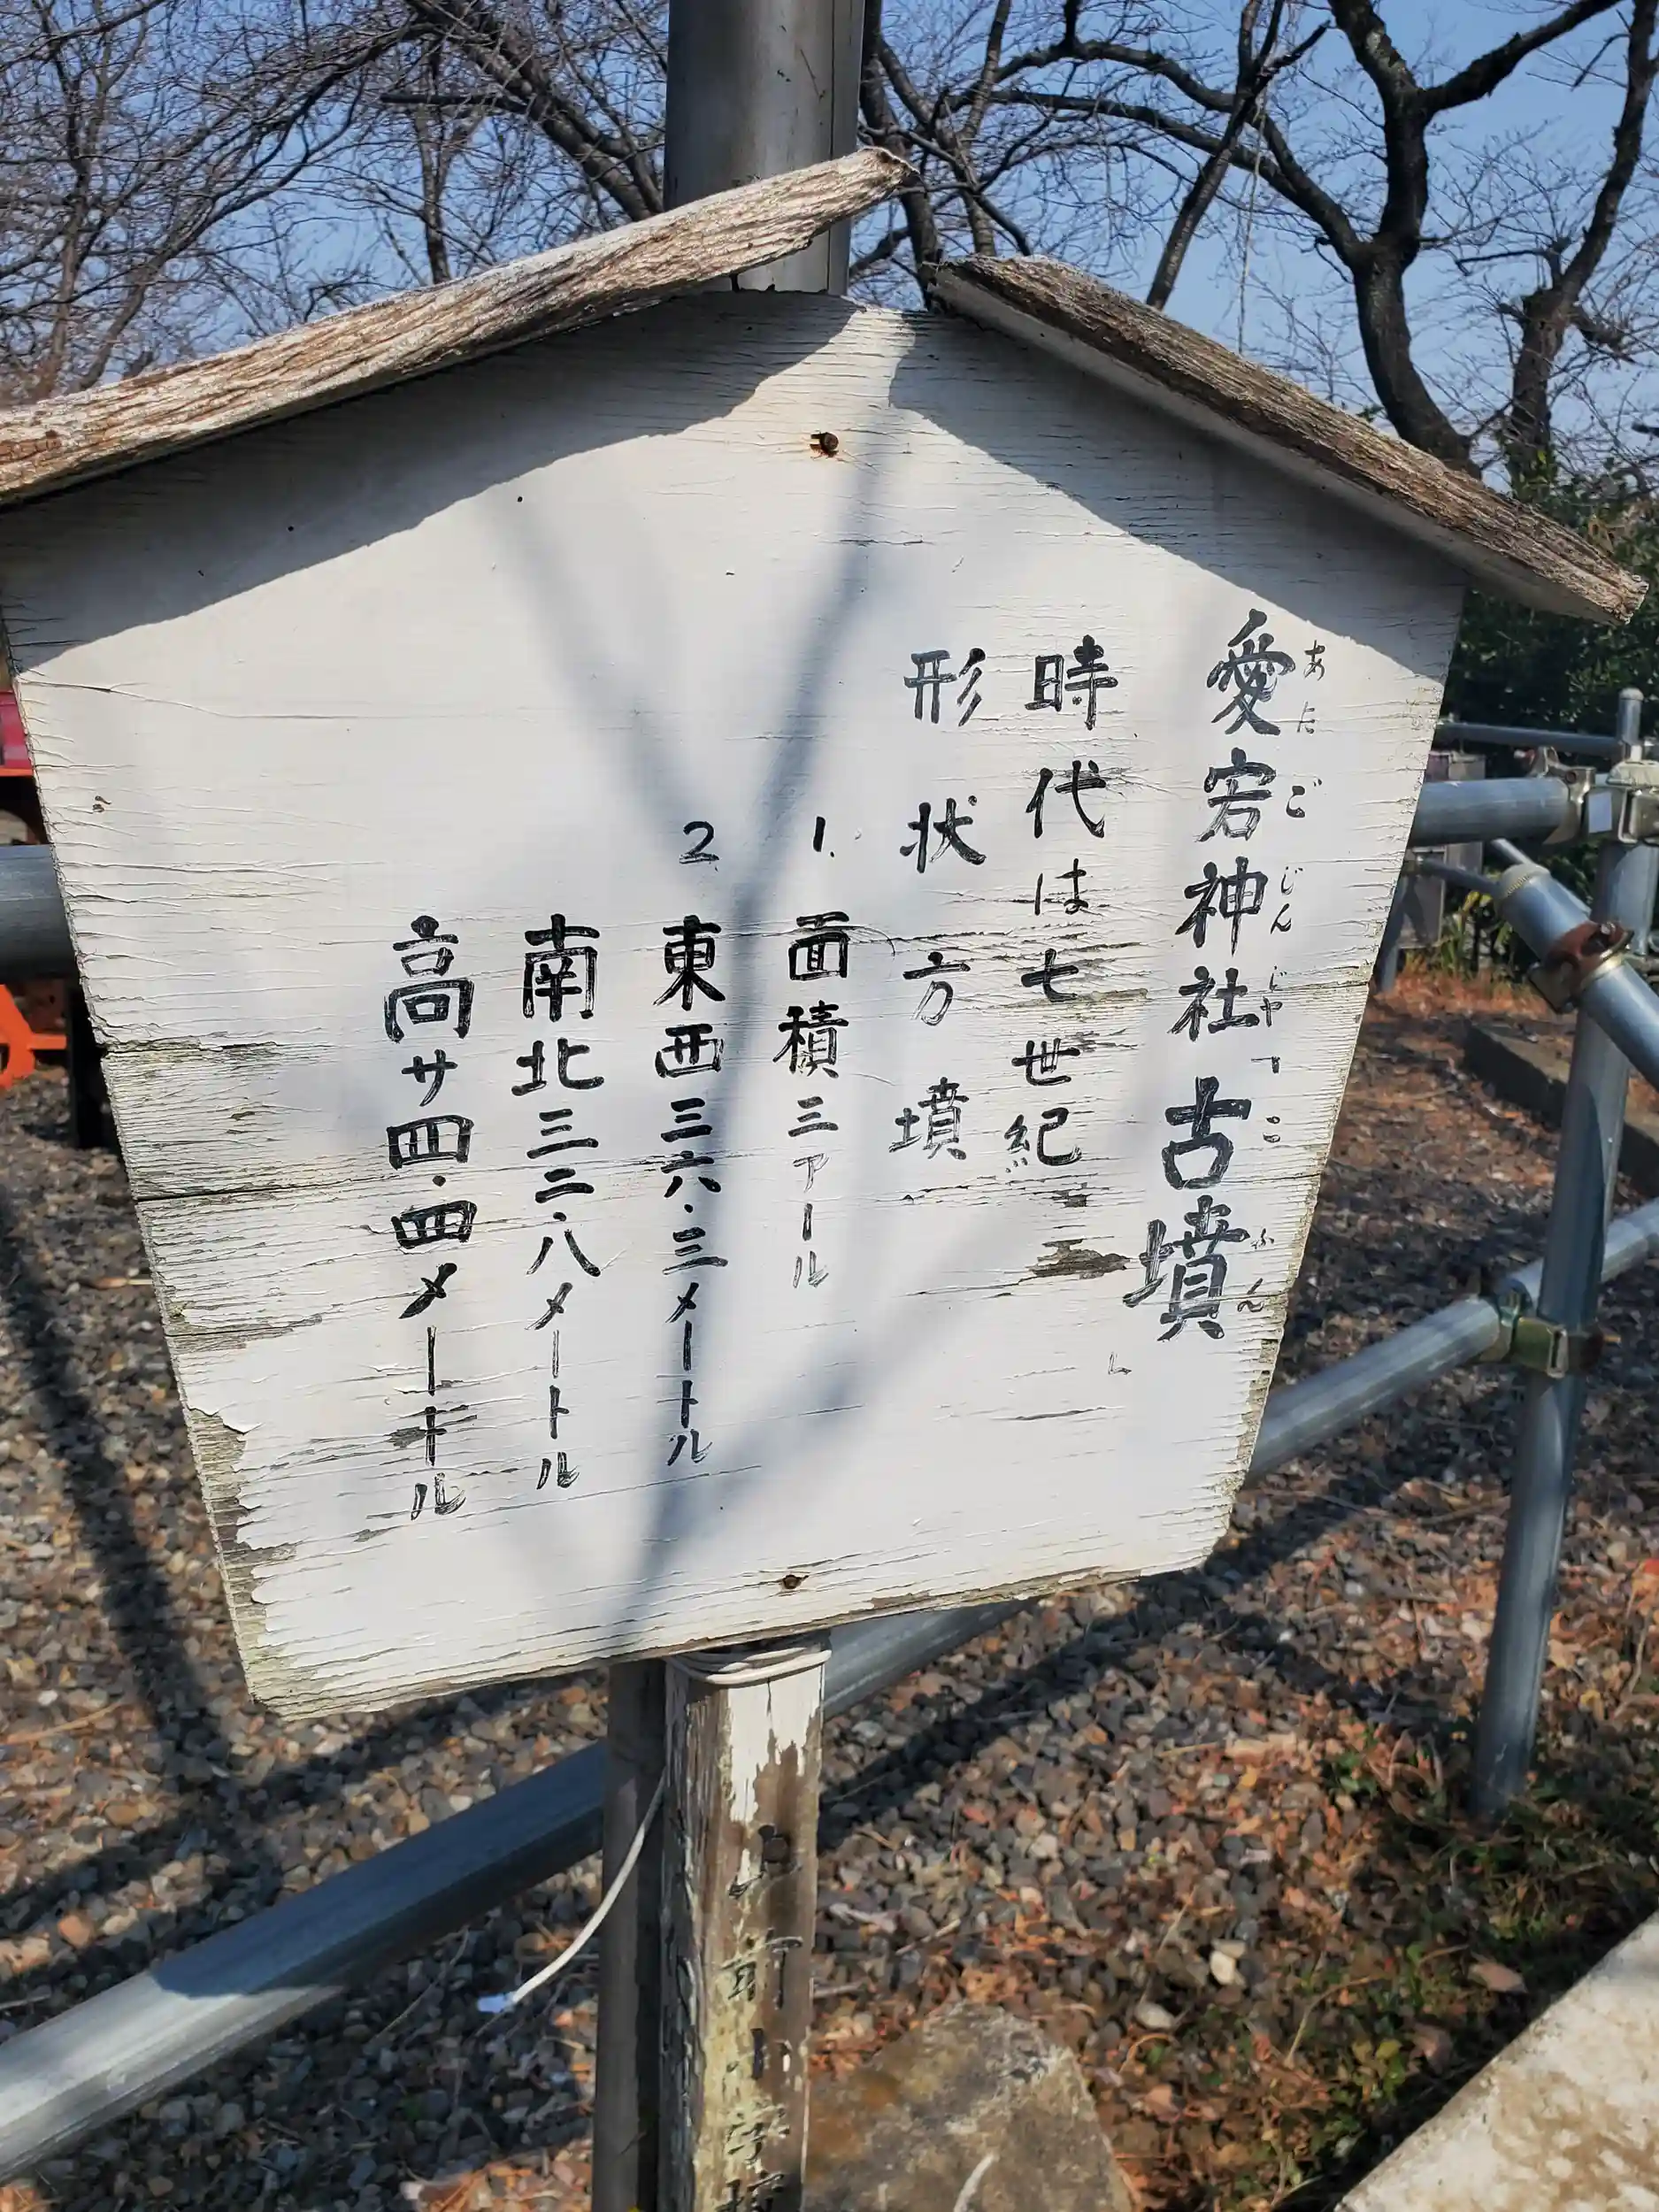 愛宕神社古墳
あたごじんじゃ「こふん」
時代は七世紀
形状 方墳
1. 面積三アール
2. 東西三六.三メートル
南北三二.八メートル
高サ四.四メートル